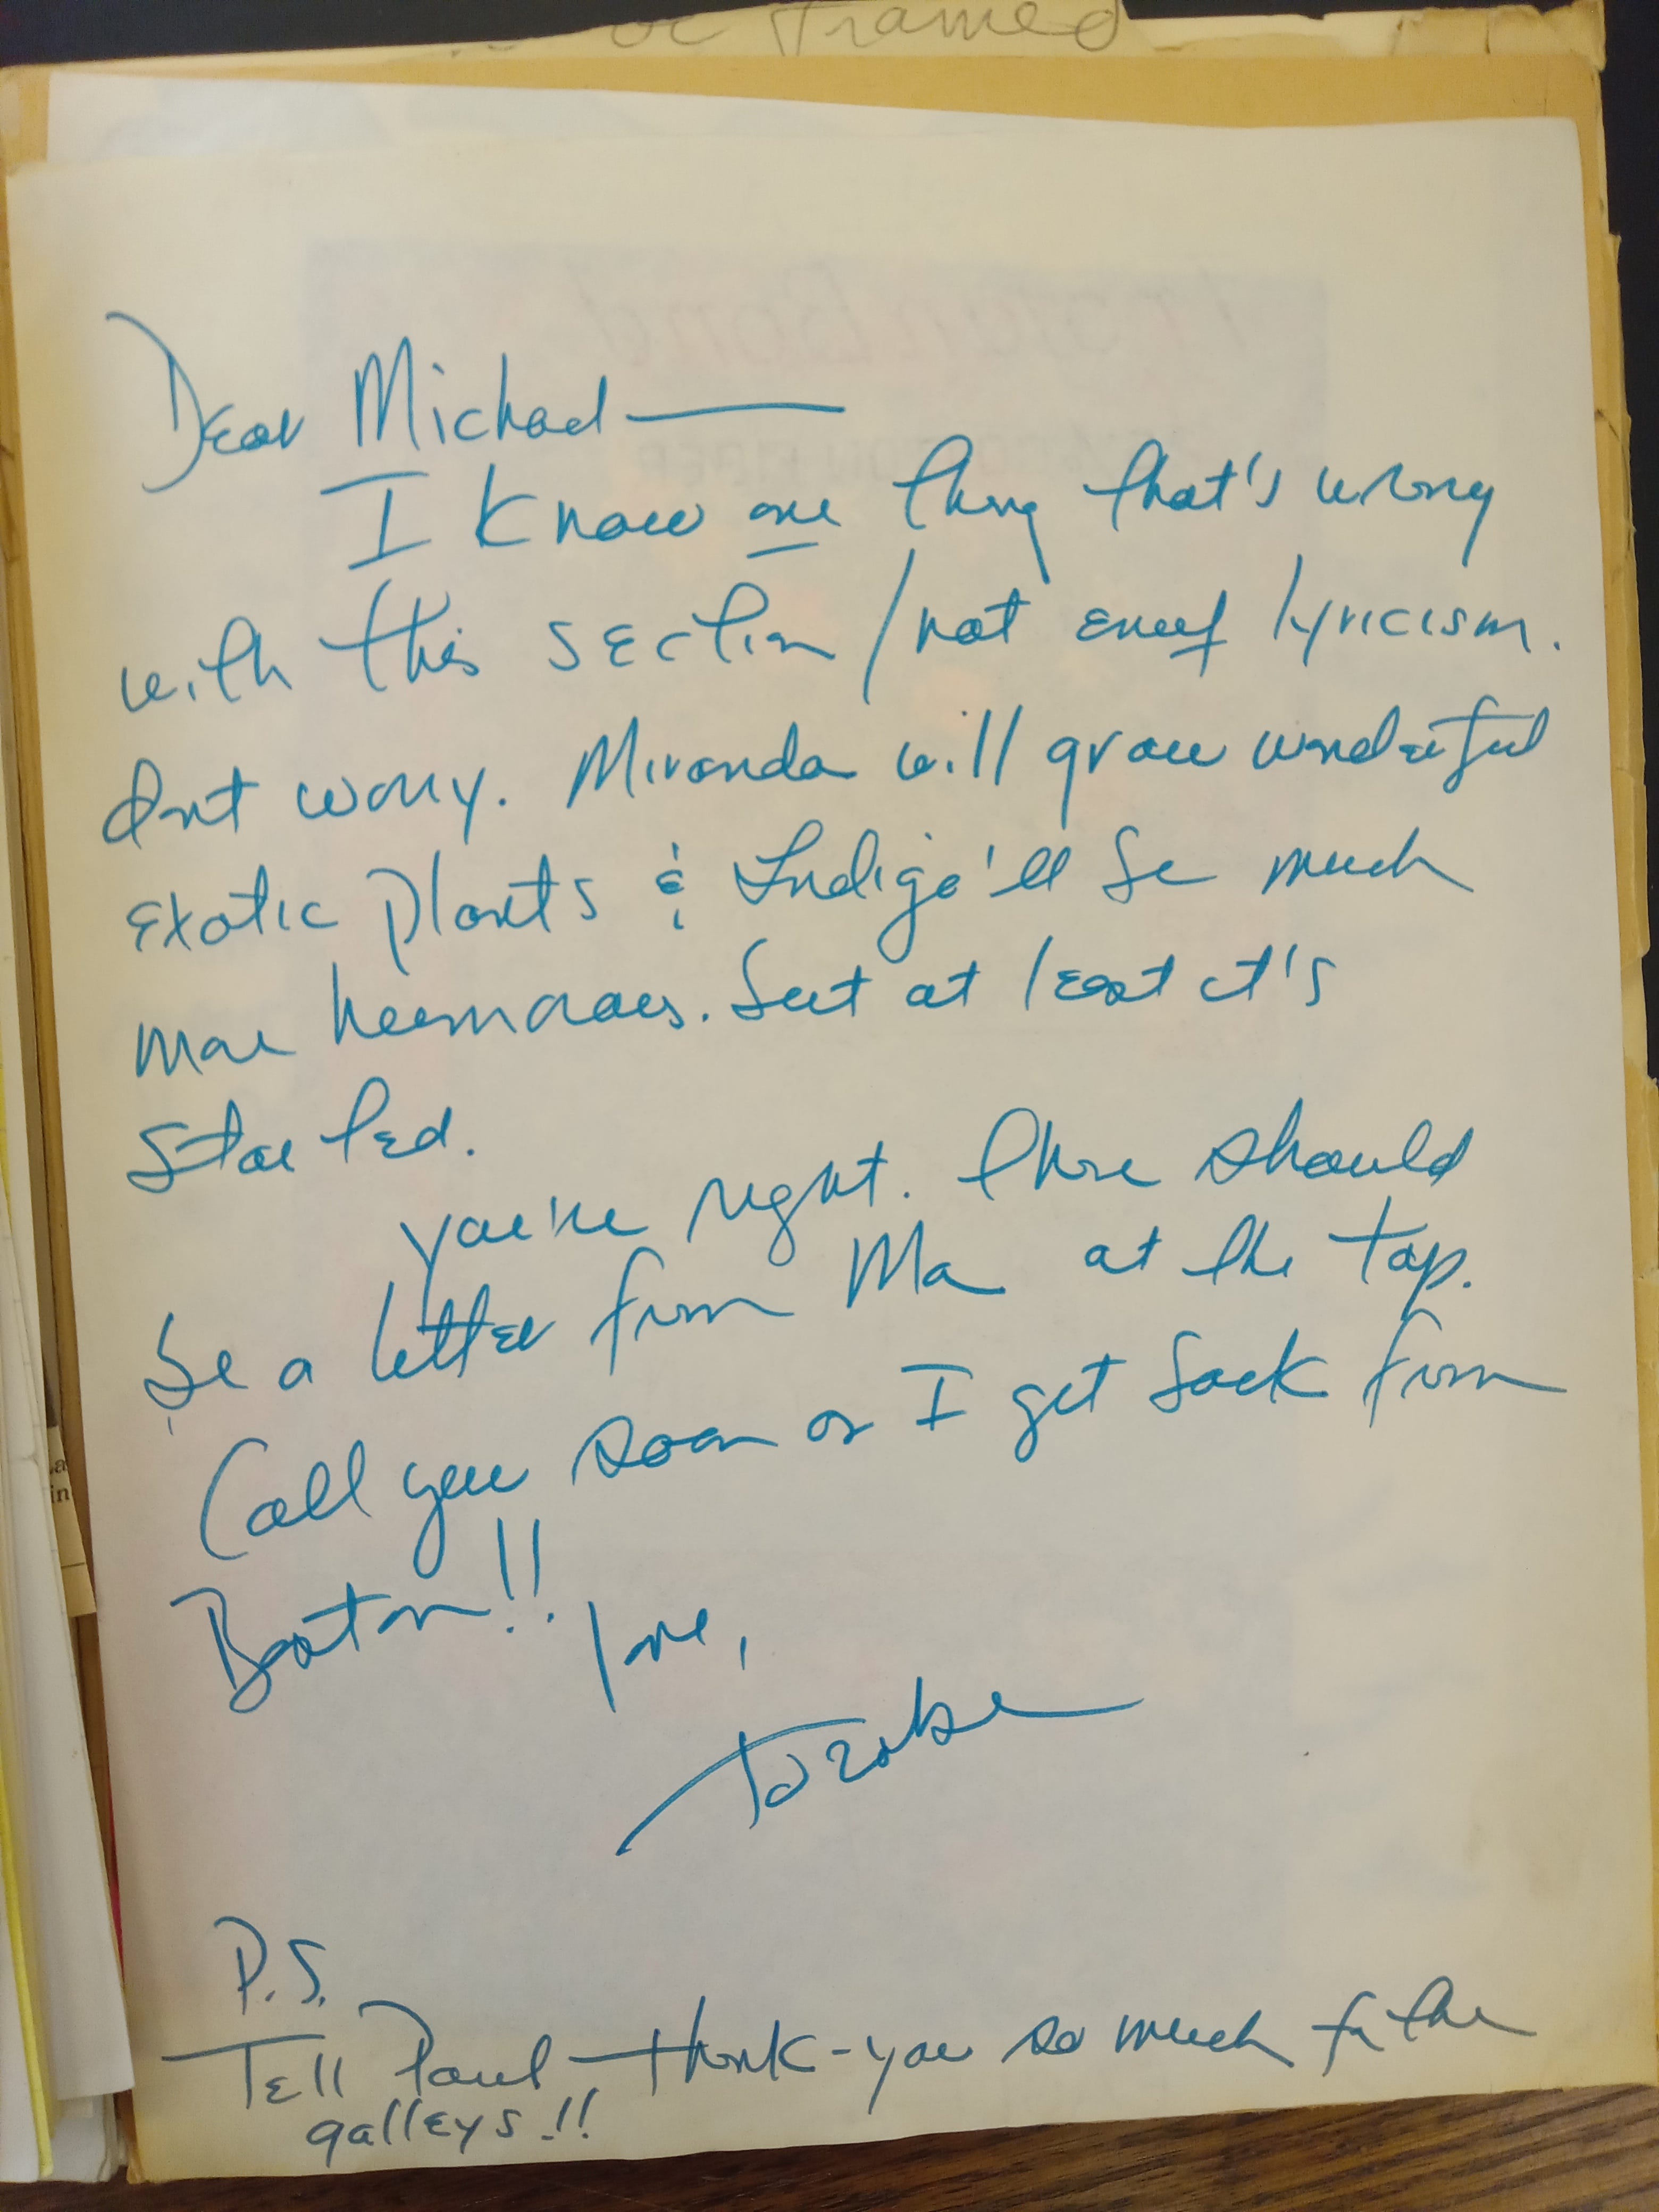 be framed
Dear Michael —
I know one thing that's wrong
with this section / not enuf lyricism.
dont worry. Miranda will grow wonderful
exotic plants & Indigo'll be much
more humorous. but at least it's
started.
you're right. there should
be a letter from Ma at the top.
Call you soon as I get back from
Boston!! love,
Tozake
P.S.
Tell Paul — thank-you so much for the
galleys.!!